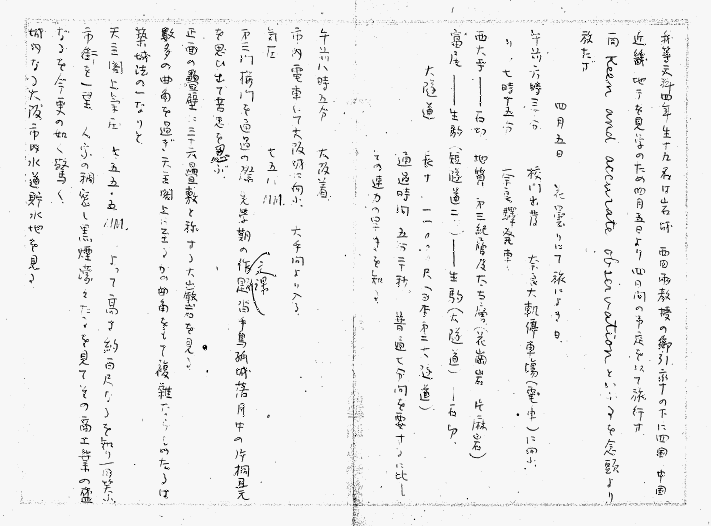 我等文科四年生十九名は岩城 西田両教授の御引率の下に四国 中国
近畿地方を見学のため四月五日より四日間の予定を以て旅行す
同 Keen and accurate observation といふことを念頭より
放たず
四月五日 花曇りにて旅によき日
午前六時三十分 校門出発 奈良大軌停車場(電車)に向ふ
〃 七時十五分 奈良駅発車
西大寺──石切 地質 第三紀層及たち層(花崗岩 片麻岩)
富尾──生駒(短隧道二)──生駒(大隧道)──石切
大隧道 長サ 一一〇〇〇尺(日本第二ノ隧道)
通過時間 五分二十秒 普通七分間を要するに比し
その速力の早きを知る
午前八時五分 大阪着
市内電車にて大阪城に向ふ 大手門より入る
気圧 七五八 MM.
第三門 桜門を通過の際 元学期の作題(文課)沼手鳥孤城落月中の片桐且元
を思ひ出て苦悲を思ふ
正面の塁壁に三十六畳敷と称する大巌石を見る
数多の曲角を過ぎ天主閣上に至るかの曲角をもて複雑ならしめたるは
築城法の一なりと
天主閣上気圧 七五五・五 MM. よって高さ約百尺なるを知り一同笑ふ
市街を一望 人家の稠密し黒煙濛々たるを見てその商工業の盛
なるを今更の如く驚く
城内なる大阪市の水道貯水池を見る